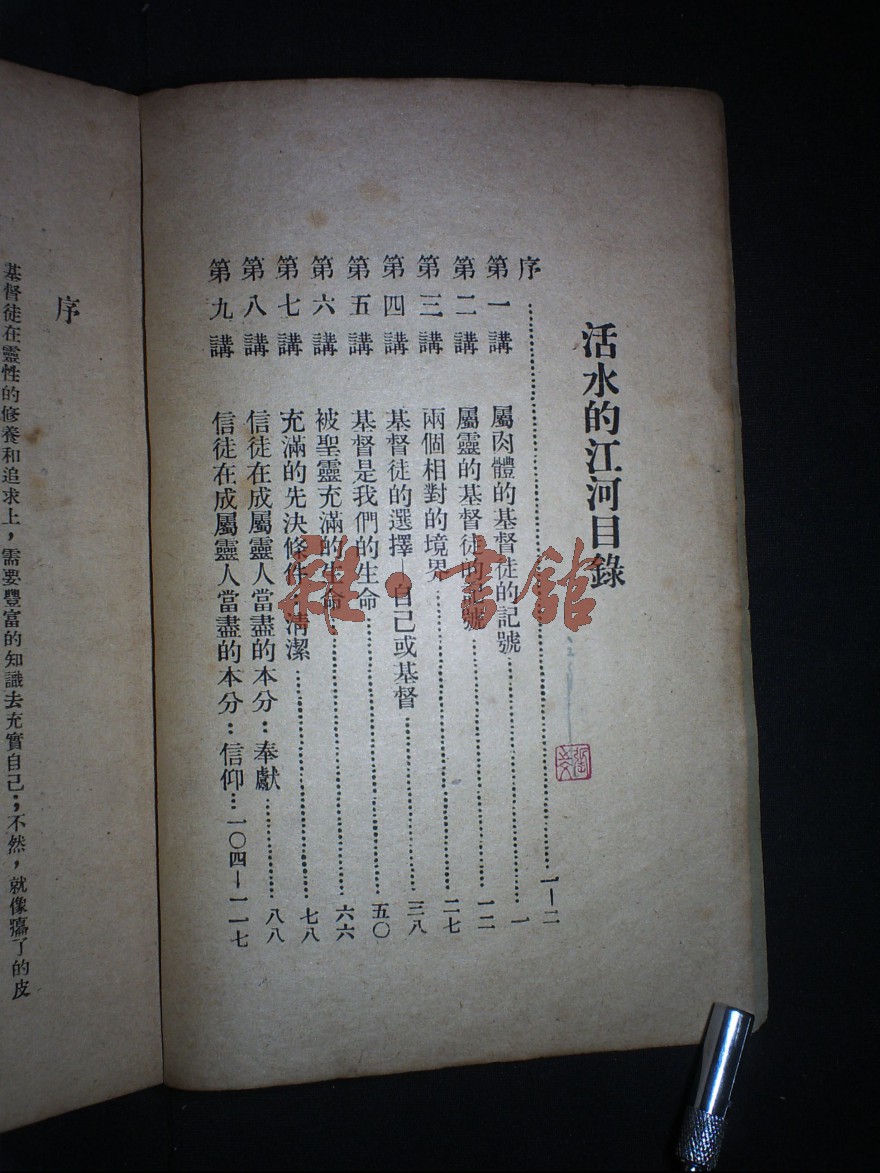 活水的江河目錄
序……一—二
第一講 屬肉體的基督徒的記號……一
第二講 屬靈的基督徒的記號……一二
第三講 兩個相對的境界……二七
第四講 基督徒的選擇—自己或基督……三八
第五講 基督是我們的生命……五〇
第六講 被聖靈充滿的生命……六六
第七講 充滿的先決條件：清潔……七八
第八講 信徒在成屬靈人當盡的本分：奉獻……八八
第九講 信徒在成屬靈人當盡的本分：信仰……一〇四—一一七
雅·書館
序
基督徒在靈性的修養和追求上，需要豐富的知識去充實自己；不然，就像癟了的皮